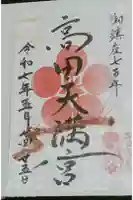 御鎮座七百年
高田天満宮
令和七年五月廿五日